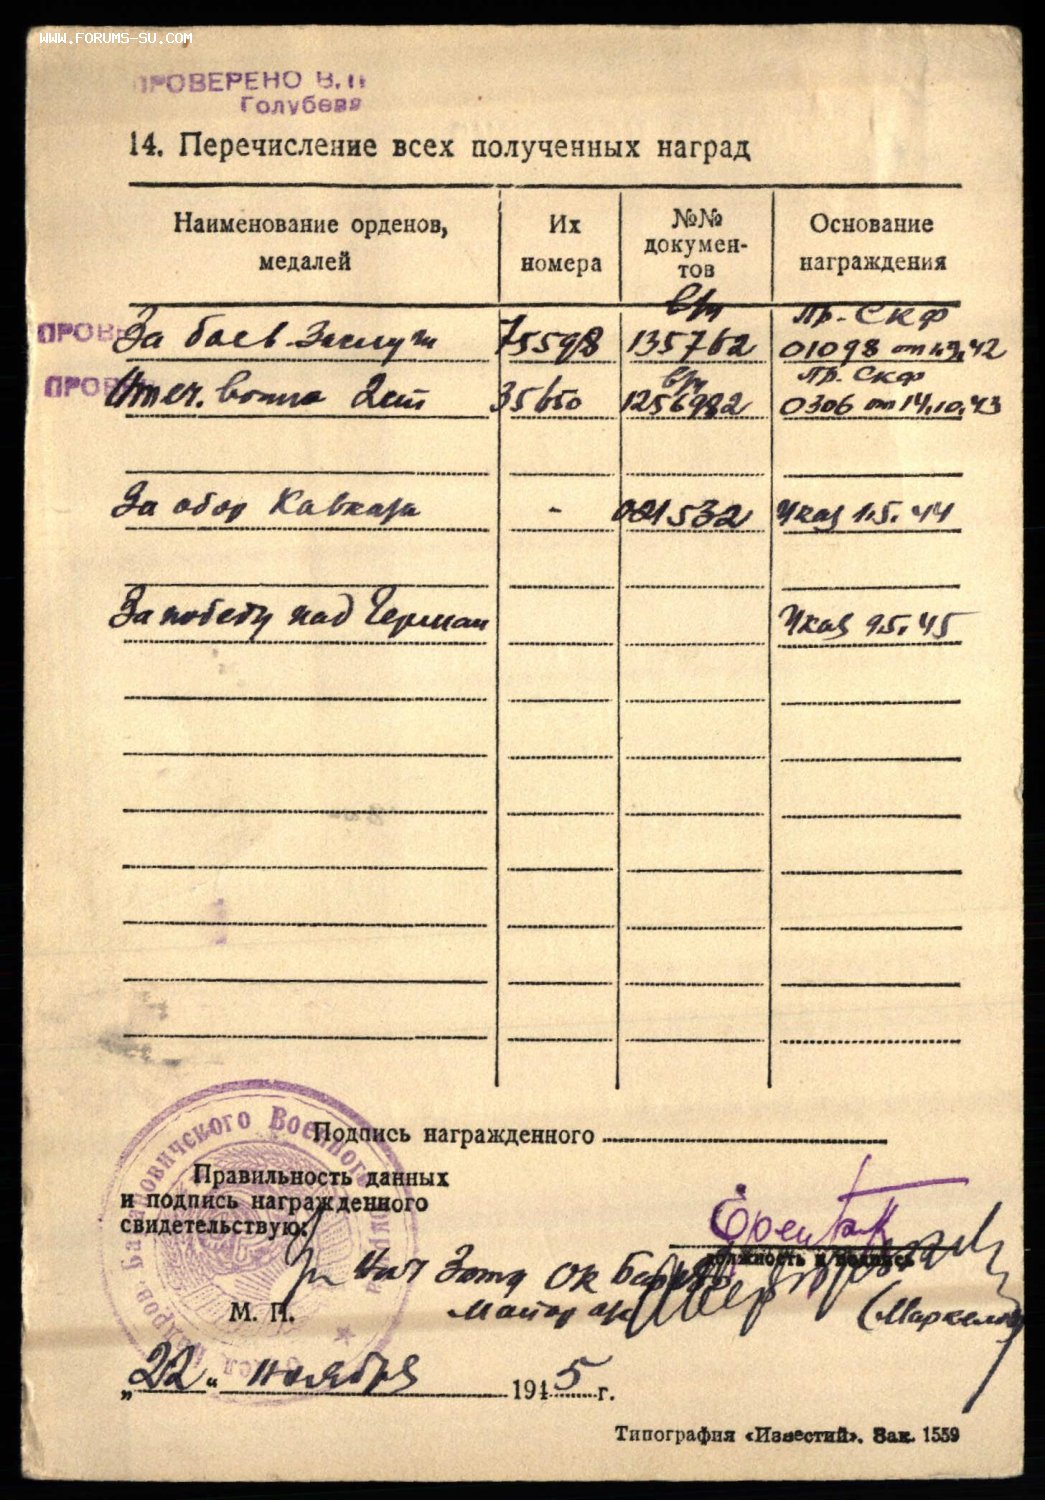 WWW.FORUMS-SU.COM
ПРОВЕРЕНО В.П
Голубева
14. Перечисление всех полученных наград
Наименование орденов, медалей
Их номера
№№ докумен-тов
Основание награждения
ПРОВЕ За боев. Заслуги 75598 вр 135762 Пр. СКФ 01098 от 42
ПРОВЕ Отеч. война 2 ст 35650 вр 1256982 Пр. СКФ 0306 от 14.10.43
За обор Кавказа - 021532 Указ 1.5.44
За победу над Герман Указ 9.5.45
Подпись награжденного
Правильность данных
и подпись награжденного
свидетельствую:
должность и подпись
Нач 3 отд ОК
Майор
(Маркелов
М. П.
„22“ ноября 1945 г.
Барановичского Военного
Типография «Известий». Зак. 1559